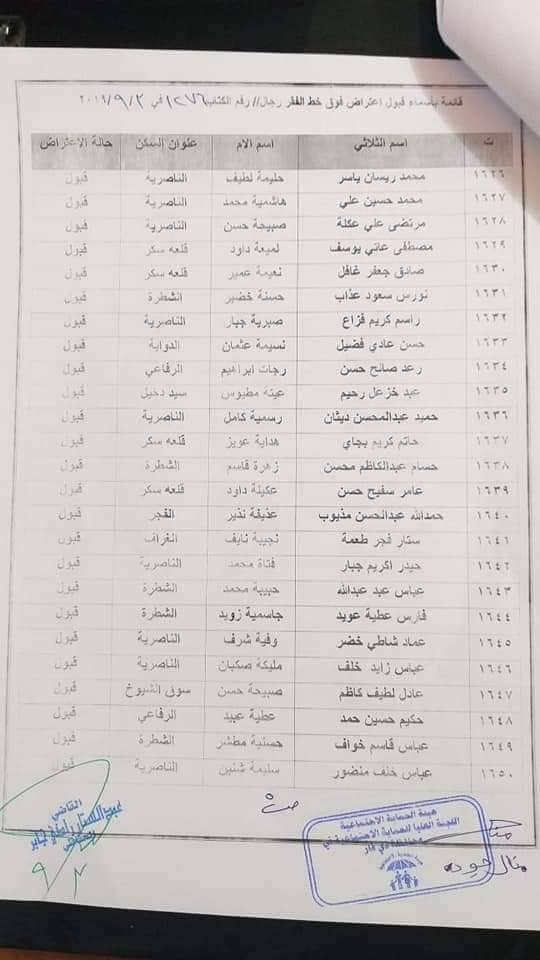 قائمة بأسماء قبول اعتراض فوق خط الفقر رجال// رقم الكتاب ١٢٧٦ في ٢٠١٩/٩/٢
ت اسم الثلاثي اسم الام عنوان السكن حالة الاعتراض
١٦٢٦ محمد ريسان ياسر حليمة لطيف الناصرية قبول
١٦٢٧ محمد حسين علي هاشمية محمد الناصرية قبول
١٦٢٨ مرتضى علي عكلة صبيحة حسن الناصرية قبول
١٦٢٩ مصطفى عاتي يوسف لميعة داود قلعه سكر قبول
١٦٣٠ صادق جعفر غافل نعيمة عمير قلعه سكر قبول
١٦٣١ نورس سعود عذاب حسنة خضير الشطرة قبول
١٦٣٢ راسم كريم فزاع صبرية جبار الناصرية قبول
١٦٣٣ حسن عادي فضيل نسيمة عثمان الدواية قبول
١٦٣٤ رعد صالح حسن رجات ابراهيم الرفاعي قبول
١٦٣٥ عبد خزعل رحيم عيتة مطيوس سيد دخيل قبول
١٦٣٦ حميد عبدالمحسن دينان رسمية كامل الناصرية قبول
١٦٣٧ حاتم كريم بجاي هداية عويز قلعه سكر قبول
١٦٣٨ حسام عبدالكاظم محسن زهرة قاسم الشطرة قبول
١٦٣٩ عامر سفيح حسن عكيلة داود قلعه سكر قبول
١٦٤٠ حمدالله عبدالحسن مذيوب عذيفة نذير الفجر قبول
١٦٤١ ستار فجر طعمة نجيبة نايف الغراف قبول
١٦٤٢ حيدر اكريم جبار فتاة محمد الناصرية قبول
١٦٤٣ عباس عبد عبدالله حبيبة محمد الشطرة قبول
١٦٤٤ فارس عطية عويد جاسمية زويد الشطرة قبول
١٦٤٥ عماد شاطي خضر وفية شرف الناصرية قبول
١٦٤٦ عباس زايد خلف مليكة صكبان الناصرية قبول
١٦٤٧ عادل لطيف كاظم صبيحة حسن سوق الشيوخ قبول
١٦٤٨ حكيم حسين حمد عطية عبيد الرفاعي قبول
١٦٤٩ عباس قاسم خواف حسنية مطشر الشطرة قبول
١٦٥٠ عباس خلف منضور سليمة شنين الناصرية قبول
هيئة الحماية الاجتماعية
اللجنة العليا للحماية الاجتماعية في
القاضي
٩/٢